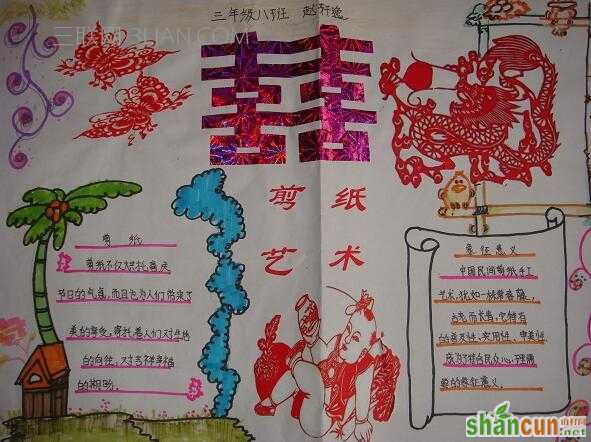 三年级八班 赵
3LIAN.COM
囍
剪纸
艺术
剪纸
剪纸不仅烘托喜庆
节日的气氛，而且也为人们带来了
美的享受，寄托着人们对生活
的向往、对吉祥幸福
的期盼。
象征意义
中国民间剪纸手工
艺术，犹如一株常春藤，
古老而长青，它特有
的普及性、实用性、审美性
成为了符合民众心理需
要的象征意义。
shancun
.net